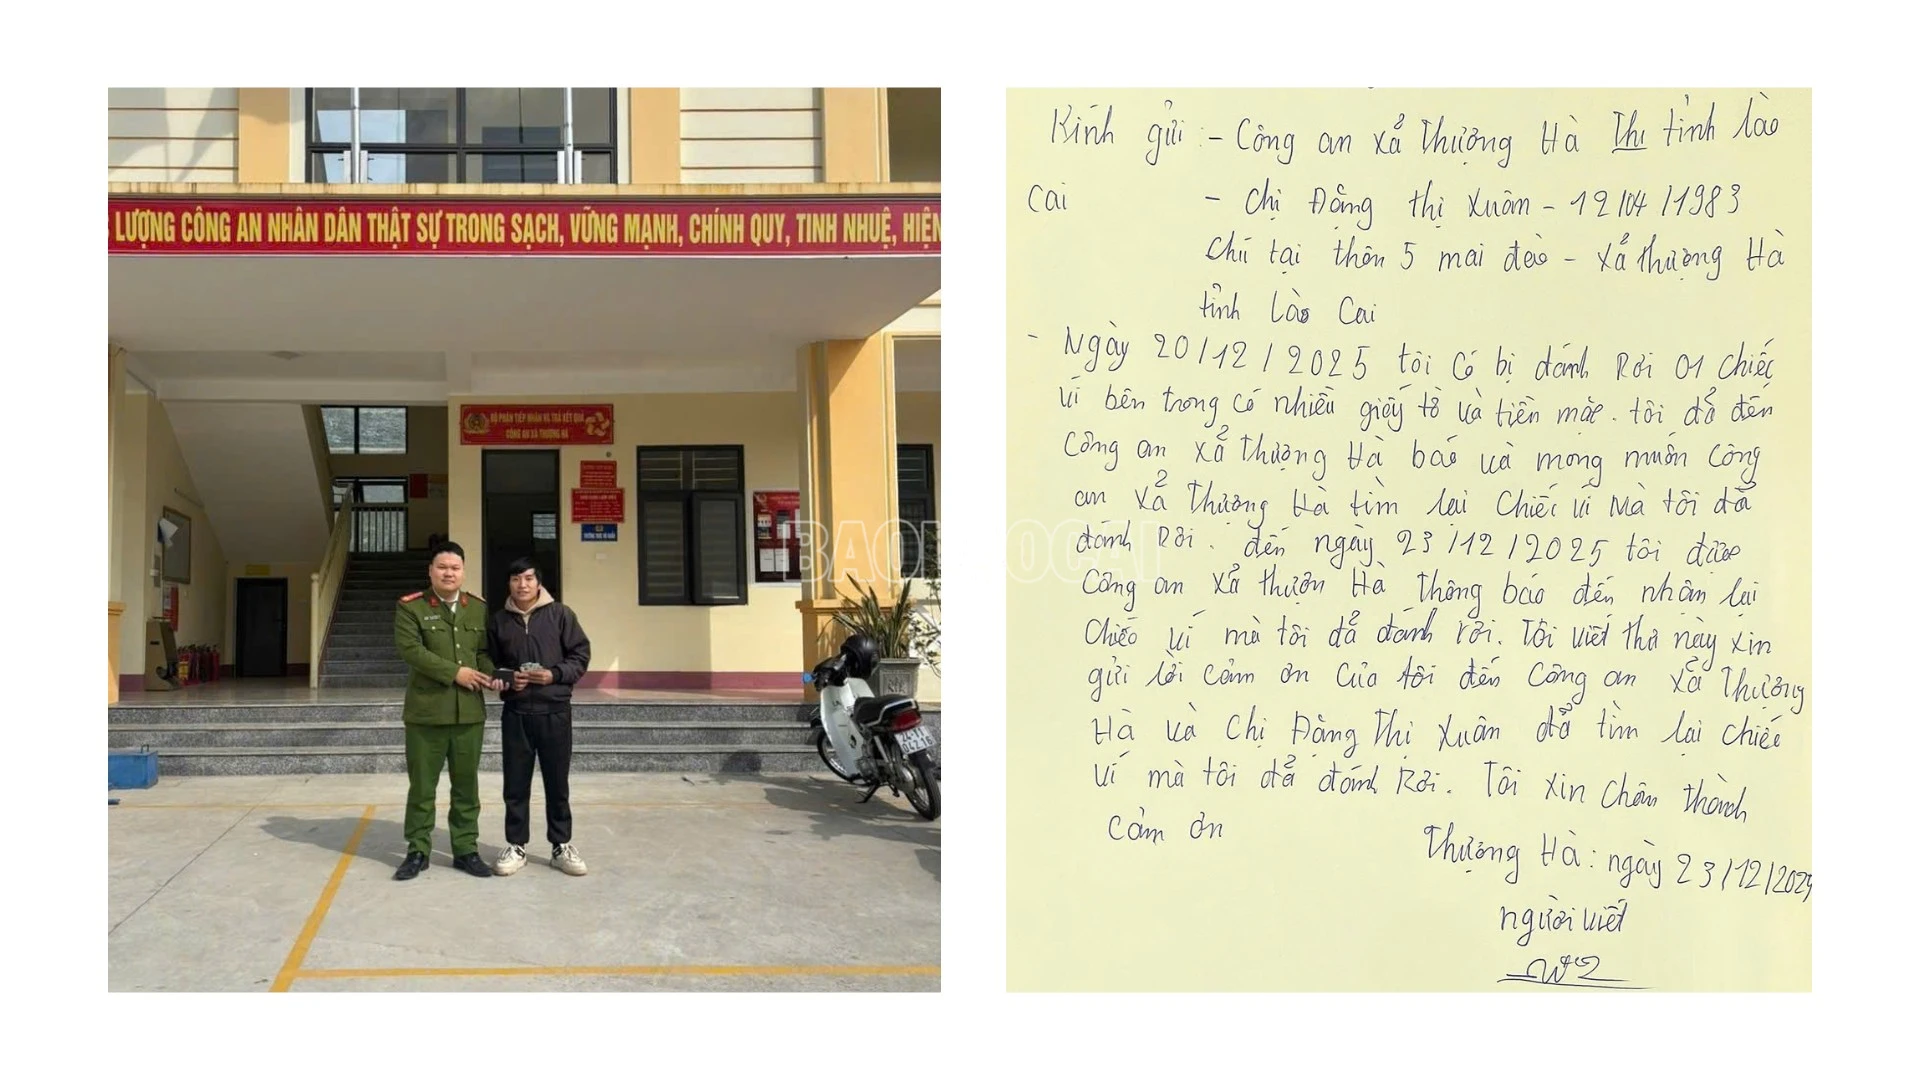 LƯỢNG CÔNG AN NHÂN DÂN THẬT SỰ TRONG SẠCH, VỮNG MẠNH, CHÍNH QUY, TINH NHUỆ, HIỆN
BỘ PHẬN TIẾP NHẬN VÀ TRẢ KẾT QUẢ
CÔNG AN XÃ THƯỢNG HÀ
Kính gửi: - Công an xã Thượng Hà Thị tỉnh lào
Cai - Chị Đặng thị Xuân - 12/04/1983
Chú tại thôn 5 mai đào - xã thượng Hà
tỉnh Lào Cai
- Ngày 20/12/2025 tôi Có bị đánh Rơi 01 Chiếc
ví bên trong có nhiều giấy tờ và tiền mặc. tôi đã đến
Công an xã Thượng Hà báo và mong muốn Công
an xã Thượng Hà tìm lại Chiếc ví Mà tôi đã
đánh Rơi. đến ngày 23/12/2025 tôi được
Công an xã thượn Hà Thông báo đến nhận lại
Chiếc ví mà tôi đã đánh rơi. Tôi viết thư này xin
gửi lời cảm ơn Của tôi đến Công an xã Thượng
Hà và Chị Đặng Thị Xuân đã tìm lại chiếc
ví mà tôi đã đánh Rơi. Tôi xin Chân thành
Cảm ơn
Thượng Hà: ngày 23/12/2025
người viết